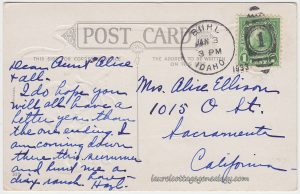 POST CARD
BUHL
JAN 3
3 PM
1933
IDAHO
1
Dear Aunt Alice
& all.
I do hope you
will all have a
better year than
the one ending. I
am coming down
thru this summer
and hunt me a
ranch
Mrs. Alice Ellison
1015 O St.
Sacramento
California
laurelcottagegenealogy.com